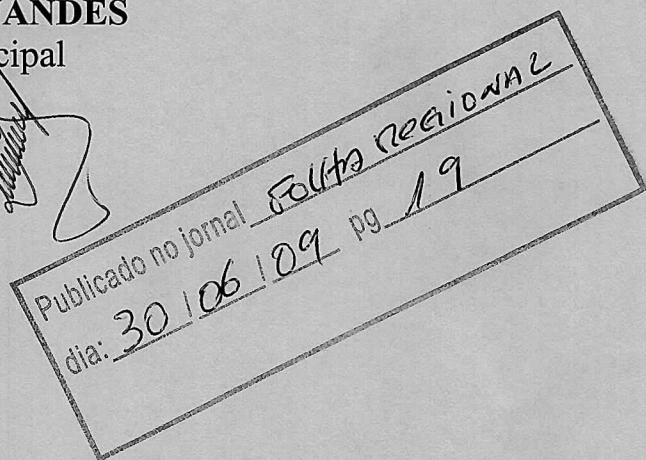 ANDES
cipal
Publicado no jornal FOLHA REGIONAL
dia: 30/06/09 pg 19